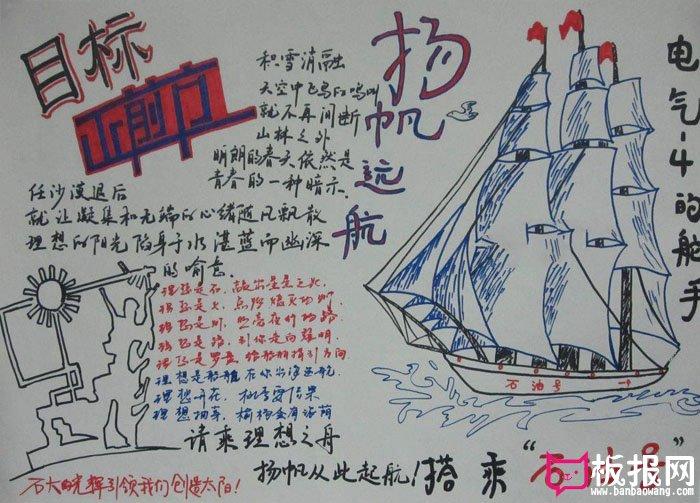 目标
正前方
积雪消融
天空中飞鸟的鸣叫
就不再间断
山林之外
明朗的春天依然是
青春的一种暗示.
任沙漠退后
就让凝集和无端的心绪随风飘散
理想的阳光陷身于水湛蓝而幽深
的喻意.
理想是石,敲出星星之火,
理想是火,点燃熄灭的灯,
理想是灯,照亮夜行的路,
理想是路,引你走向黎明.
理想是罗盘,给船舶指引方向
理想是船舶,在你出海远航.
理想开花,桃李要结果
理想抽芽,榆杨会有浓荫
请乘理想之舟
扬帆从此起航!
搭乘"
石大的光辉引领我们创造太阳!
扬帆远航
电气-4的舵手
石油号
板报网
www.banbaowang.com